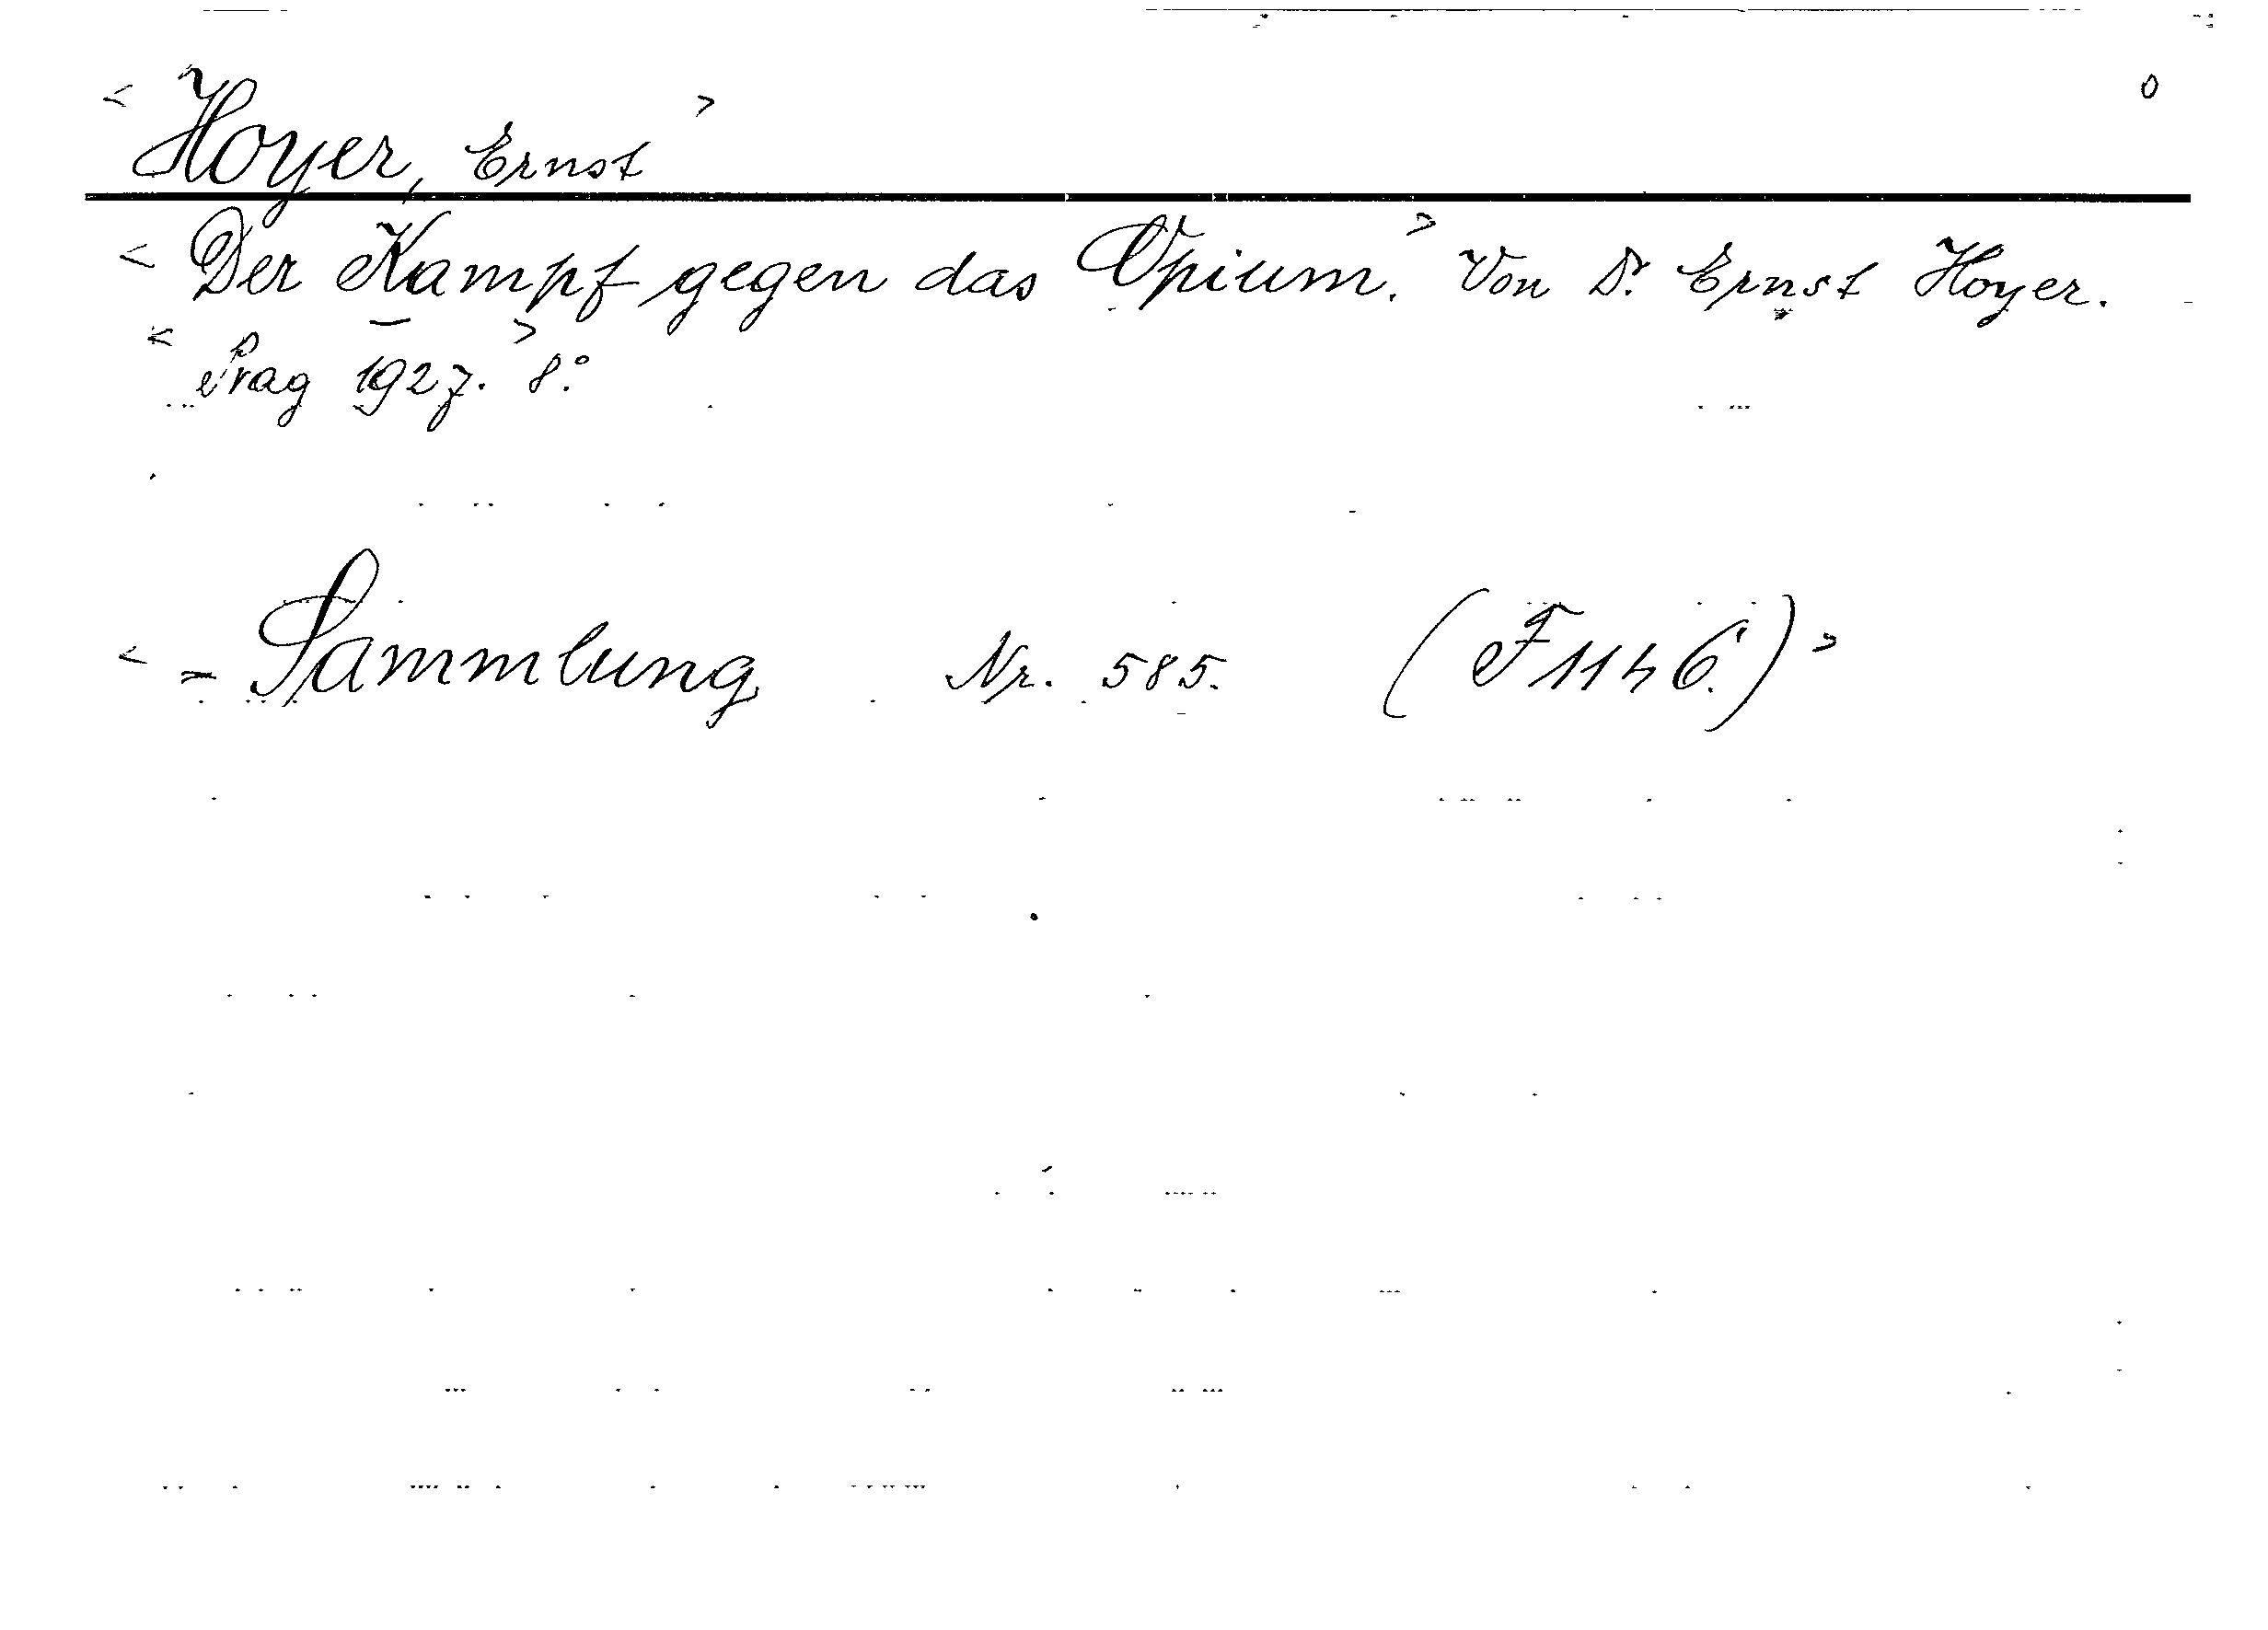 < Hoyer, Ernst > 0
< Der Kampf gegen das Opium. > Von Dr. Ernst Hoyer.
< Prag 1927. > 8°.
< = Sammlung Nr. 585. (F 1146.) >